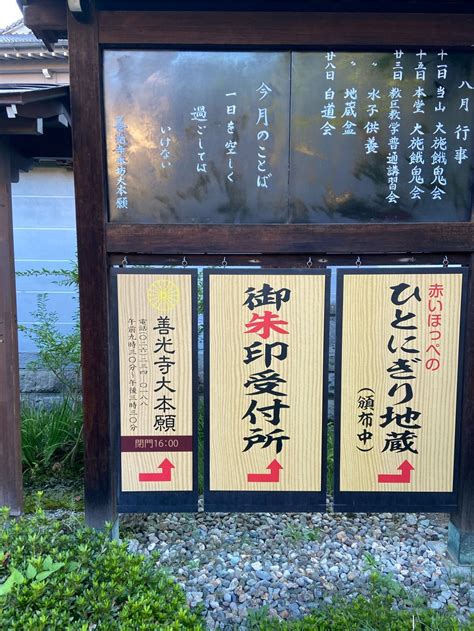 八月行事
十一日 当山 大施餓鬼会
十五日 本堂 大施餓鬼会
廿三日 教区教学普通講習会
〃 水子供養
〃 地蔵盆
廿八日 白道会
今月のことば
一日を空しく
過ごしては
いけない
善光寺大本願
赤いほっぺの
ひとにぎり地蔵
(頒布中)
御朱印受付所
善光寺大本願
電話〇二六-二三四-〇一八八
午前九時三〇分〜午後三時三〇分
閉門16:00